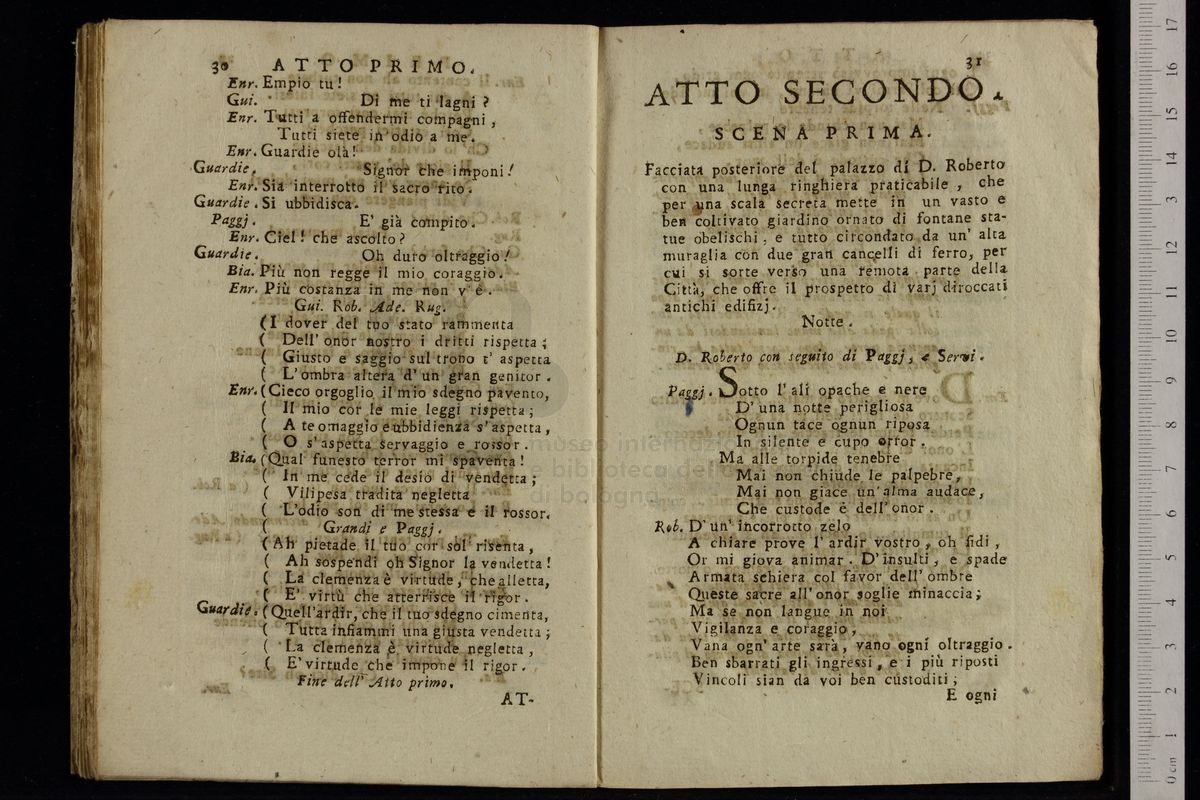 30 ATTO PRIMO.
Enr. Empio tu!
Gui. Di me ti lagni?
Enr. Tutti a offendermi compagni,
Tutti siete in odio a me.
Enr. Guardie olà!
Guardie. Signor che imponi!
Enr. Sia interrotto il sacro rito.
Guardie. Si ubbidisca.
Paggj. E' già compito.
Enr. Ciel! che ascolto?
Guardie. Oh duro oltraggio!
Bia. Più non regge il mio coraggio.
Enr. Più costanza in me non v'è.
Gui. Rob. Ade. Rug.
(I dover del tuo stato rammenta
( Dell'onor nostro i dritti rispetta;
( Giusto e saggio sul trono t'aspetta
( L'ombra altera d'un gran genitor.
Enr. (Cieco orgoglio il mio sdegno pavento,
( Il mio cor le mie leggi rispetta;
( A te omaggio e ubbidienza s'aspetta,
( O s'aspetta servaggio e rossor.
Bia. (Qual funesto terror mi spaventa!
( In me cede il desio di vendetta;
( Vilipesa tradita negletta
( L'odio son di me stessa e il rossor.
( Grandi e Paggj.
(Ah pietade il tuo cor sol risenta,
( Ah sospendi oh Signor la vendetta!
( La clemenza è virtude, che alletta,
( E' virtù che atterrisce il rigor.
Guardie. (Quell'ardir, che il tuo sdegno cimenta,
( Tutta infiammi una giusta vendetta;
( La clemenza è virtude negletta,
( E' virtude che impone il rigor.
Fine dell'Atto primo.
AT-
31
ATTO SECONDO.
SCENA PRIMA.
Facciata posteriore del palazzo di D. Roberto
con una lunga ringhiera praticabile, che
per una scala secreta mette in un vasto e
ben coltivato giardino ornato di fontane sta-
tue obelischi, e tutto circondato da un'alta
muraglia con due gran cancelli di ferro, per
cui si sorte verso una remota parte della
Città, che offre il prospetto di varj diroccati
antichi edifizj.
Notte.
D. Roberto con seguito di Paggj, e Servi.
Paggj. Sotto l'ali opache e nere
D'una notte perigliosa
Ognun tace ognun riposa
In silente e cupo orror.
Ma alle torpide tenebre
Mai non chiude le palpebre,
Mai non giace un'alma audace,
Che custode è dell'onor.
Rob. D'un'incorrotto zelo
A chiare prove l'ardir vostro, oh fidi,
Or mi giova animar. D'insulti, e spade
Armata schiera col favor dell'ombre
Queste sacre all'onor soglie minaccia;
Ma se non langue in noi
Vigilanza e coraggio,
Vana ogn'arte sarà, vano ogni oltraggio.
Ben sbarrati gli ingressi, e i più riposti
Vincoli sian da voi ben custoditi;
E ogni
museo internaz
e biblioteca della
di bologna
0 cm 1 2 3 4 5 6 7 8 9 10 11 12 13 14 15 16 17